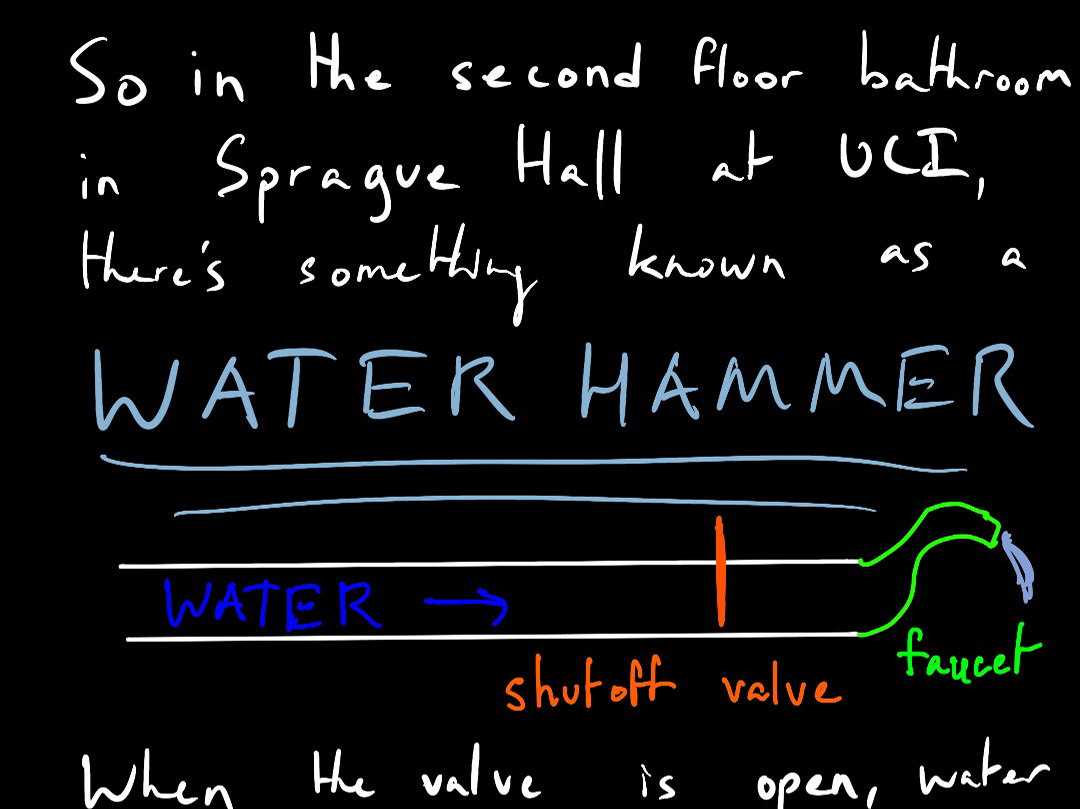 So in the second floor bathroom
in Sprague Hall at UCI,
there's something known as a
WATER HAMMER
WATER →
faucet
shutoff valve
When the valve is open, water